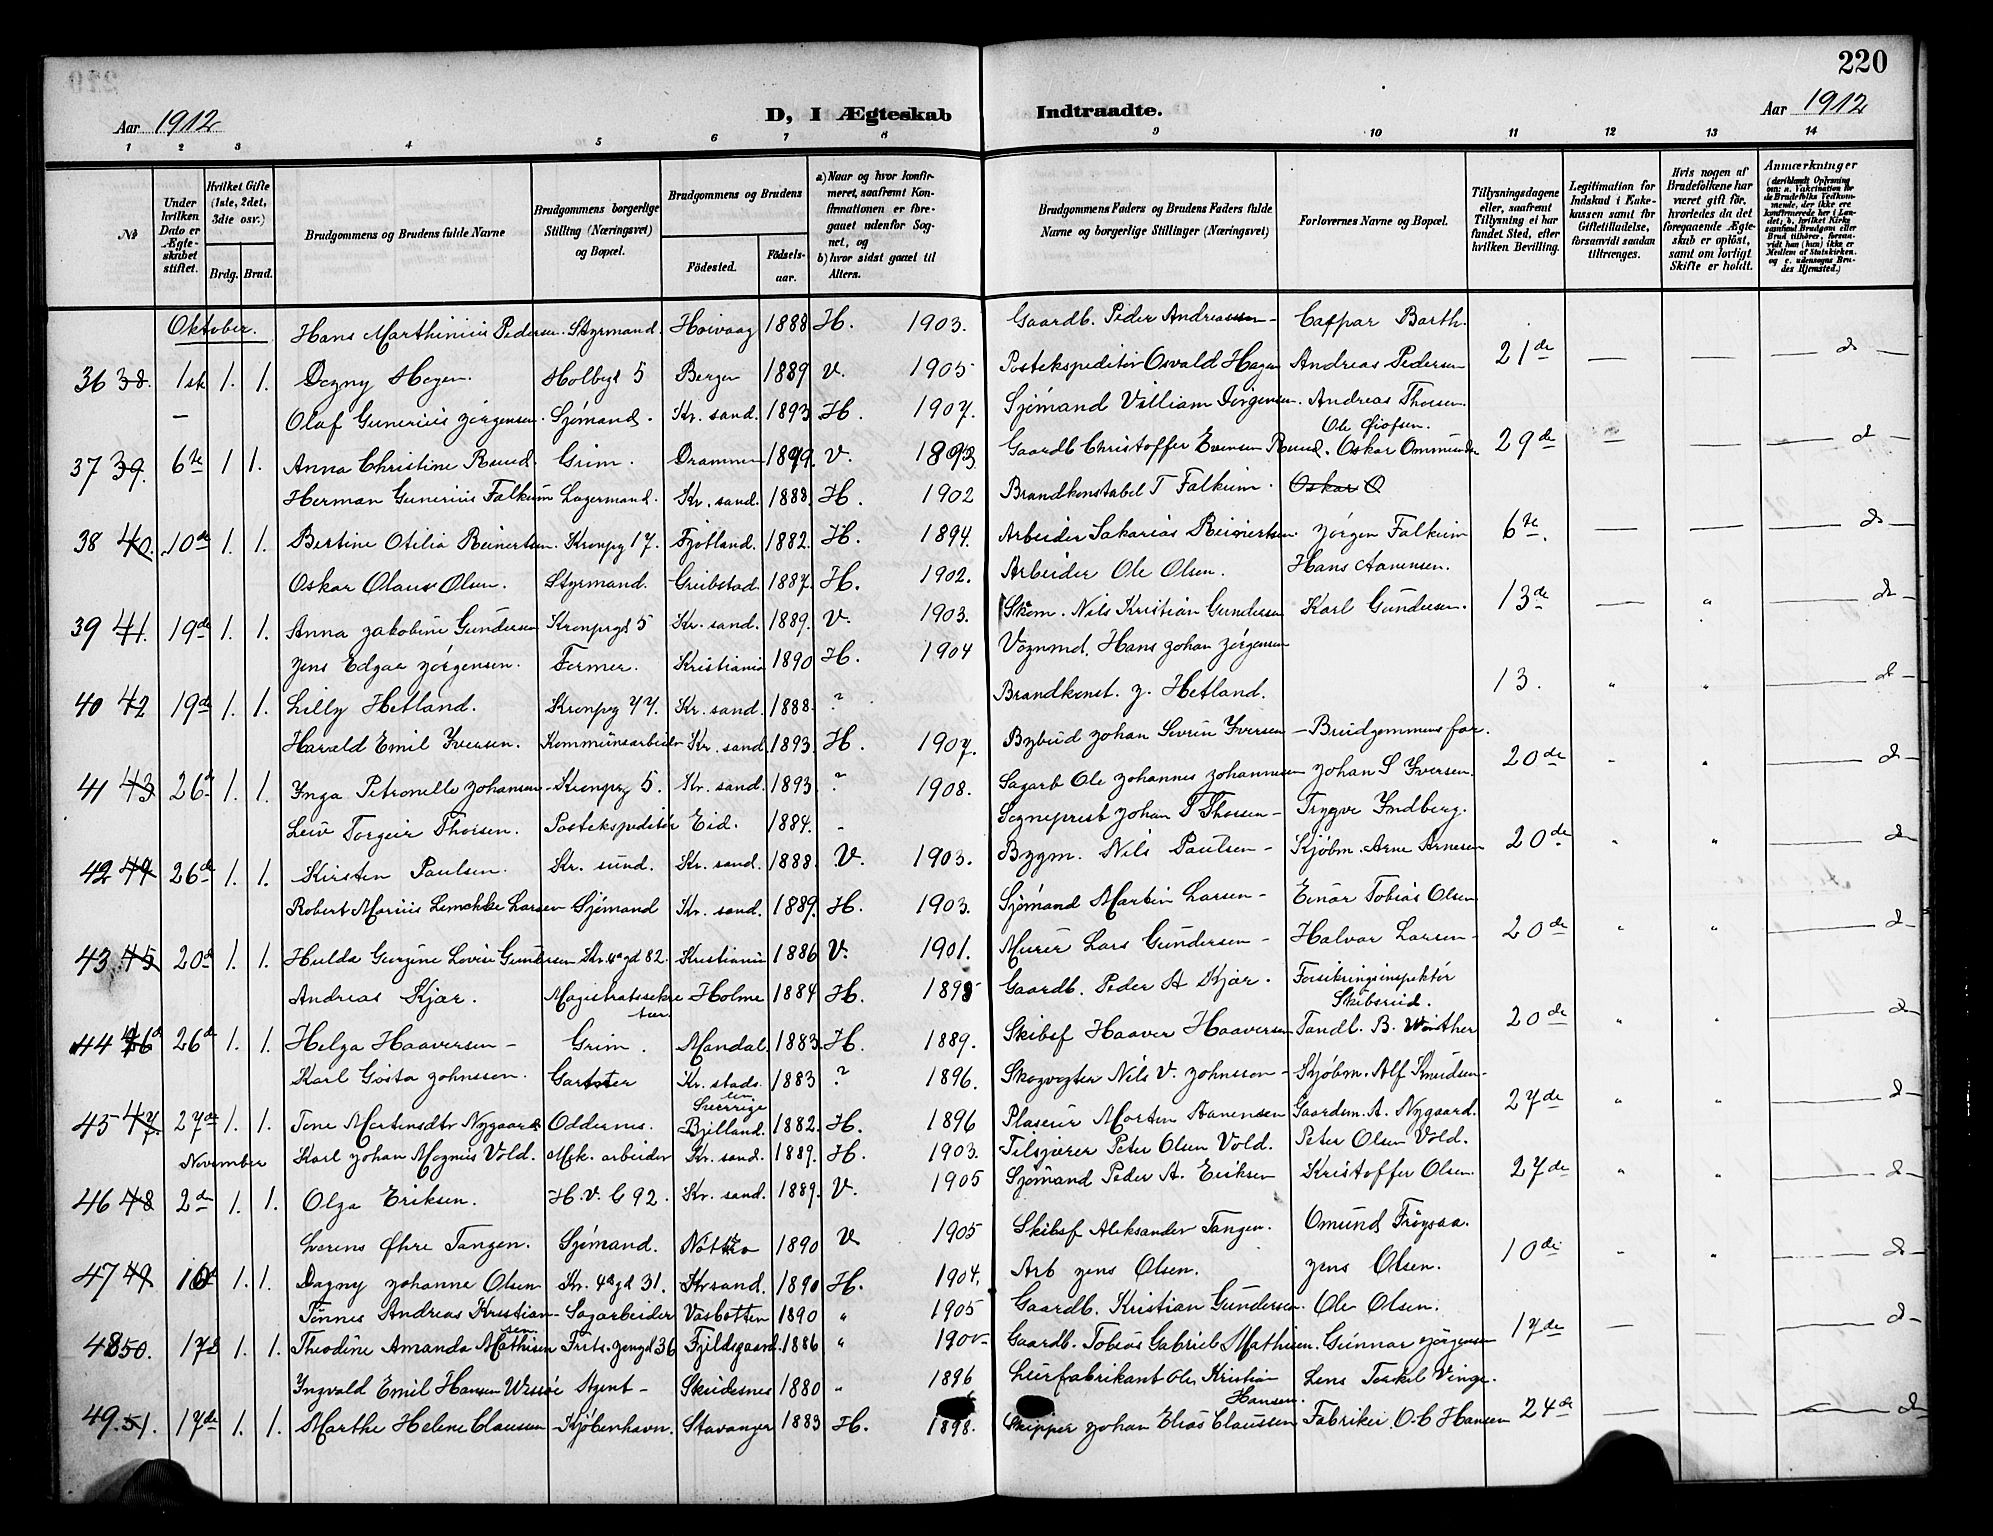 220
Aar 1912
D, I Ægteskab Indtraadte.
Aar 1912
1 2 3 4 5 6 7 8 9 10 11 12 13 14
№
Under hvilken Dato er Ægteskabet stiftet.
Hvilket Gifte (1ste, 2det, 3dte osv.)
Brdg. Brud.
Brudgommens og Brudens fulde Navne
Brudgommens borgerlige Stilling (Næringsvei) og Bopæl.
Brudgommens og Brudens
Födested. Födselsaar.
a) Naar og hvor konfirmeret, saafremt Konfirmationen er foregaaet udenfor Sognet, og
b) hvor sidst gaaet til Alters.
Brudgommens Faders og Brudens Faders fulde Navne og borgerlige Stillinger (Næringsvei)
Forlovernes Navne og Bopæl.
Tillysningsdagene eller, saafremt Tillysning ei har fundet Sted, efter hvilken Bevilling.
Legitimation for Indskud i Enkekassen samt for Giftetilladelse, forsaavidt saadan tiltrænges.
Hvis nogen af Brudefolkene har været gift för, hvorledes da det foregaaende Ægteskab er oplöst, samt om lovligt Skifte er holdt.
Anmærkninger
(deriblandt Oplysning om: a. Vakcination for de Brudefolks Vedkommende, der ikke ere konfirmerede her i Landet; b. hvilket Kirkesamfund Brudgom eller Brud tilhörer, forsaavidt han (hun) ikke er Medlem af Statskirken. og c. udensogns Brudes Hjemsted.)
Oktober. Hans Marthinius Pedersen. Styrmand. Höivaag 1888 H. 1903. Gaardb. Peder Andreassen - Caspar Barth.
36 38. 1ste 1. 1. Dagny Hagen. Holbgt 5 Bergen 1889 V. 1905 Postekspeditör Osvald Hagen Andreas Pedersen 21de — — — do —
— Olaf Gunerius Jörgensen. Sjömand. Kr. sand. 1893 H. 1907. Sjömand Villiam Jörgensen. Andreas Thorsen.
37 39. 6te 1 1. Anna Christine Ruud. Grim. Drammen 1899. V. 1893 Gaardb Christoffer Evensen Ruud. Oskar Ommundsen 29de — — — do —
Herman Gunerius Falkum Lagermand. Kr. sand. 1888. H. 1902 Brandkonstabel T Falkum. Oskar O
38 40. 10de 1. 1. Bertine Otilia Reinertsen. Kronpg 17. Fjotland. 1882. H. 1894. Arbeider Sakarias Reinertsen. Jörgen Falkum 6te. — — — do —
Oskar Olaus Olsen. Styrmand. Grubstad 1887. H. 1902. Arbeider Ole Olsen. Hans Aanensen.
39 41. 19de 1. 1. Anna Jakobine Gundersen Kronprgd 5 Kr. sand. 1889. V. 1903. Skom. Nils Kristian Gundersen Karl Gundersen. 13de — " — do —
Jens Edgar Jörgensen. Former. Kristiania 1890 H. 1904 Vognmd. Hans Johan Jörgensen
40 42 19de 1. 1. Lilly Hetland. Kronpg 77. Kr. sand. 1888. ? Brandkonst. J. Hetland. 13. " " — do —
Harald Emil Iversen. Kommunsarbeider Kr. sand. 1893. H. 1907. Bybud Johan Severin Iversen - Brudgommens far.
41 43 26de 1. 1. Inga Petronelle Johansen - Kronprg 5. Kr. sand. 1893 ? 1908. Sagarb Ole Johannes Johannesen Johan S Iversen. 20de - " — do —
Leiv Torgeir Thorsen. Postekspeditör Eid. 1884. - Sogneprest Johan T Thorsen - Trygve Indberg.
42 44 26de 1. 1. Kirsten Paulsen. Kr. sund. Kr. sand. 1888. V. 1903. Bygm. Nils Paulsen - Kjøbm. Arne Arnesen 20de " " — do —
Robert Marius Lemckke Larsen Sjömand Kr. sand. 1889. H. 1903. Sjömand Martin Larsen - Einar Tobias Olsen
43 45 20de 1. 1. Hulda Gurgine Lovise Gundersen Kr. 4agd 82. Kristiania 1886 V. 1901. Murer Lars Gundersen - Halvar Larsen - 20de " " — do —
Andreas Kjær. Magistratssekretær Holme 1884 H. 1898 Gaardb. Peder A Kjær. Forsikringsinspektör Skibsrud.
44 46 26de 1. 1. Helga Haaversen - Grim. Mandal. 1883. H. 1889. Skibsf Haaver Haaversen Tandl. B. Winther 20de " " — do —
Karl Gösta Johnsson. Gartner Kr. stads len. Sverrige 1883 ? 1896. Skogvogter Nils V. Johnsson - Kjøbm. Alf Knudsen -
45 47. 27de 1. 1. Tone Martinsdtr Nygaard. Oddernes. Bjelland. 1882. H. 1896 Plaserer Morten Aanensen Gaardm. A. Nygaard. 27de " " — do —
November Karl Johan Magnus Vold. Mek. arbeider Kr. sand. 1889. H. 1903. Filsjærer Peter Olsen Vold. Peter Olsen Vold.
46 48 2den 1. 1. Olga Eriksen. H. V. G 92. Kr. sand. 1889. V. 1905 Sjömand Peder A. Eriksen Kristoffer Olsen. 27de " " — do —
Lorens Øhre Tangen. Sjömand. Nötterö 1890 V 1905 Skibsf Aleksander Tangen. Omund Fröysaa.
47 49 10de 1. 1. Dagny Johanne Olsen Kr. 4agd 31. Kr sand. 1890 H. 1904. Arb Jens Olsen. Jens Olsen. 10de - " — do —
Tönnes Andreas Kristiansen - Sagarbeider Vasbotten 1890 " 1905 Gaardb. Kristian Gundersen. Ole Olsen.
48 50. 17de 1. 1. Theodine Amanda Mathisen Frits. Jengd 36 Fjeldsgaard. 1886 " 1900 Gaardb. Tobias Gabriel Mathisen. Gunnar Jörgensen 17de — — — do —
Ingvald Emil Hansen Wessöe Agent - Skudesnes 1880 " 1896 Lurfabrikant Ole Kristian Hansen. Lens Terkel Vinge.
49. 51. 17de 1. 1. Marthe Helene Claussen - Kjöbenhavn. Stavanger 1883 H. 1898. Skipper Johan Elias Claussen Fabriker O. C Hansen 24de — — — do